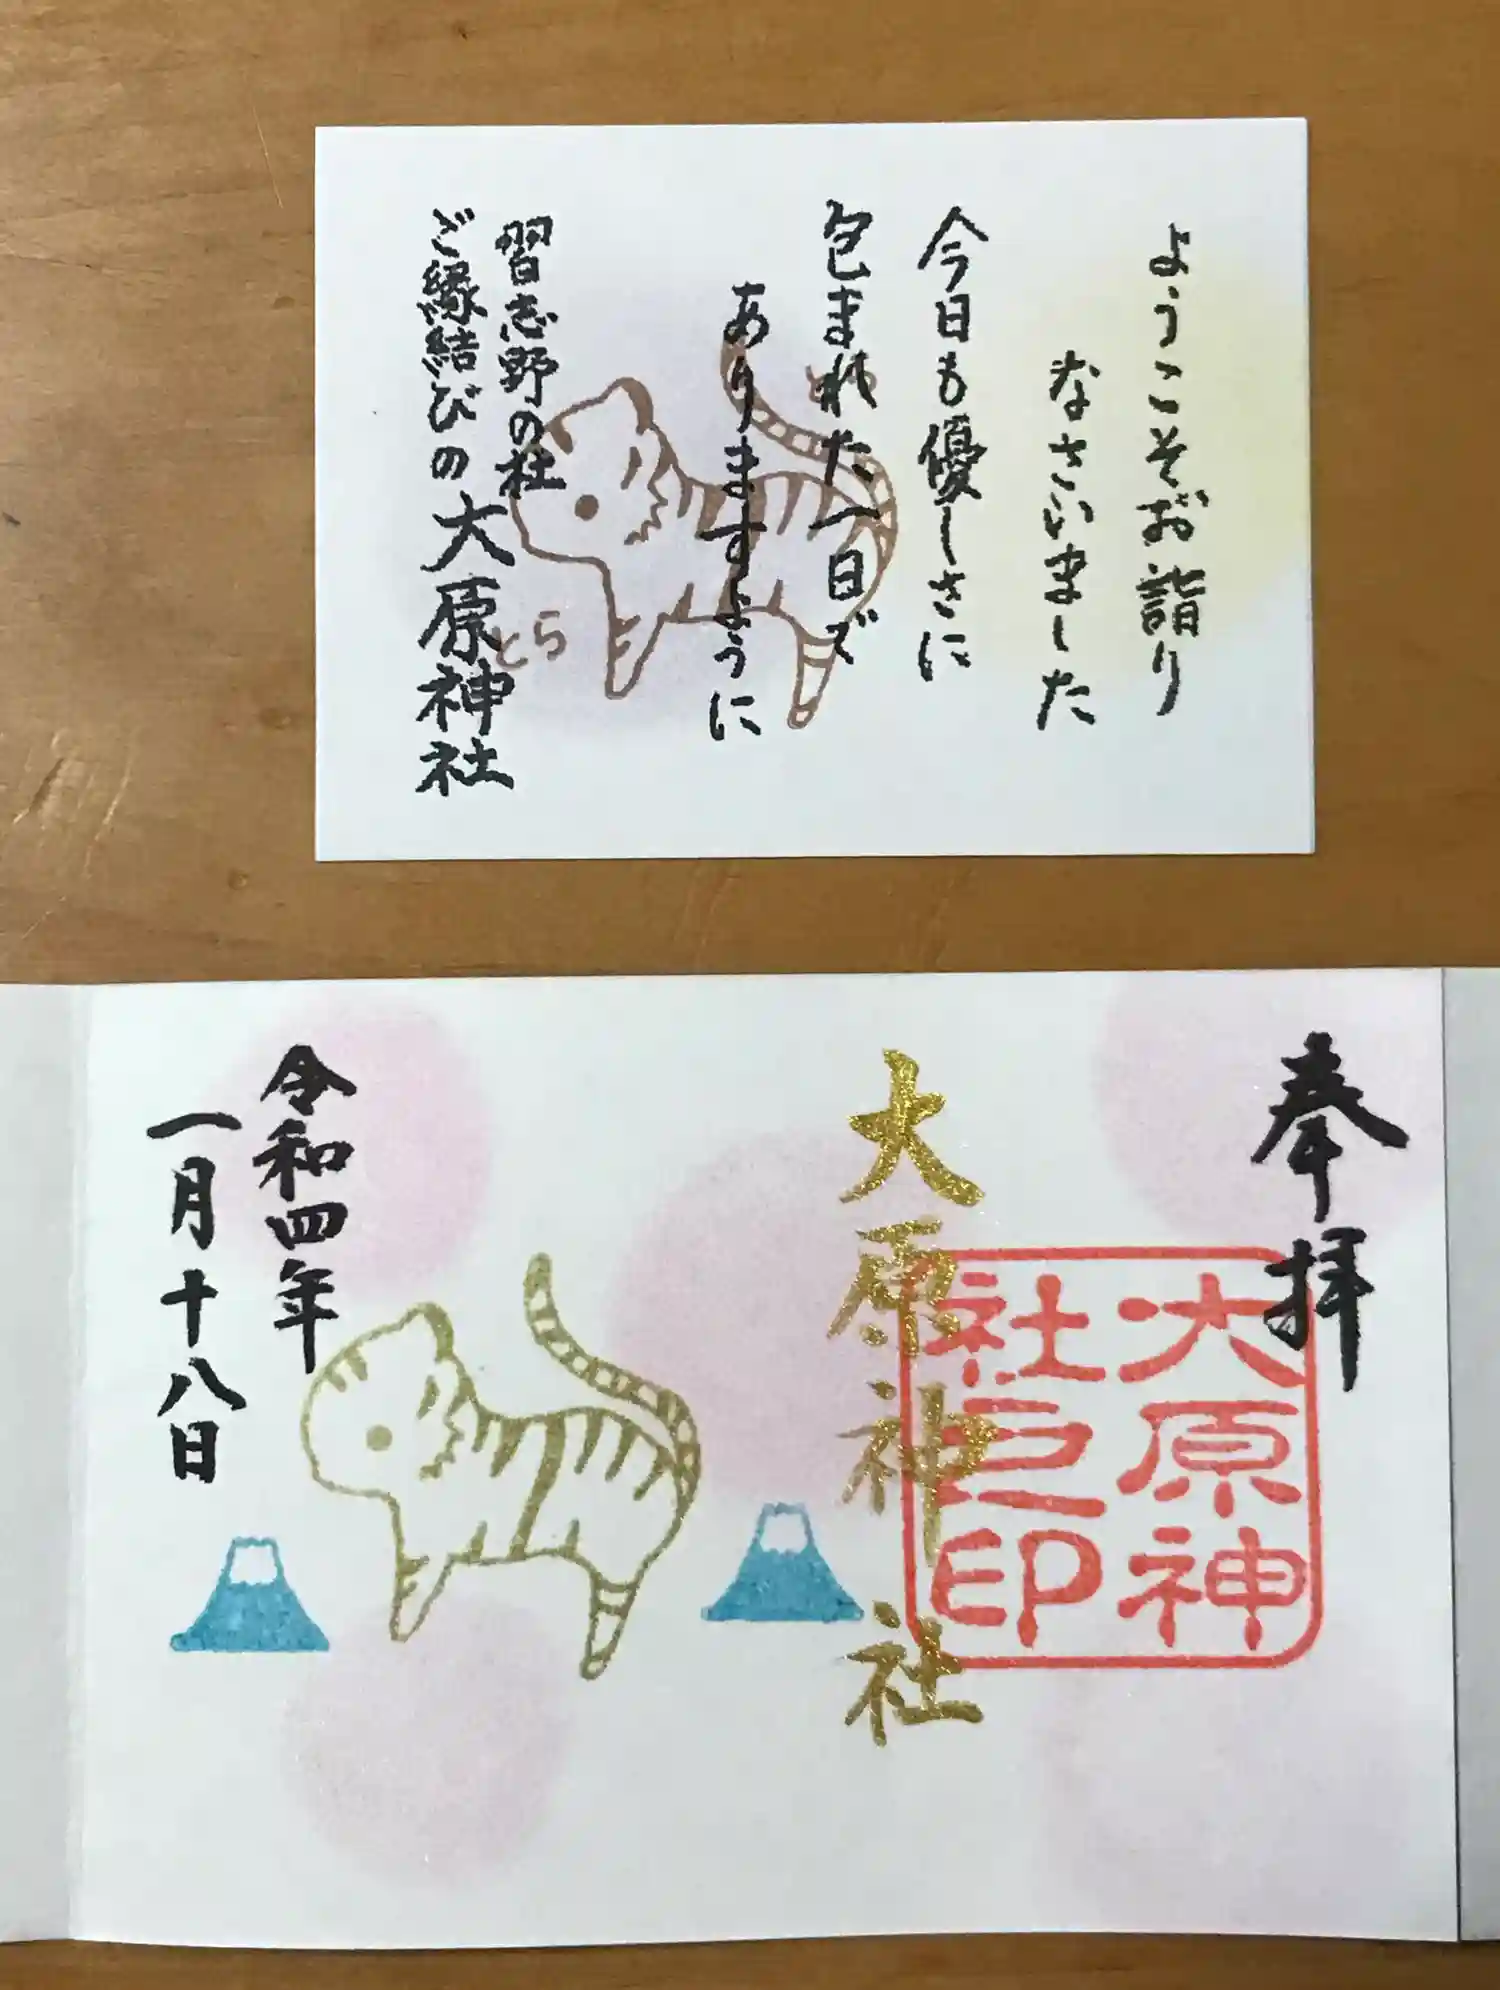 ようこそお詣り
なさいました
今日も優しさに
包まれた一日で
ありますように
習志野の杜
ご縁結びの大原神社
とら
奉拝
大原神
社之印
大原神社
令和四年
一月十八日